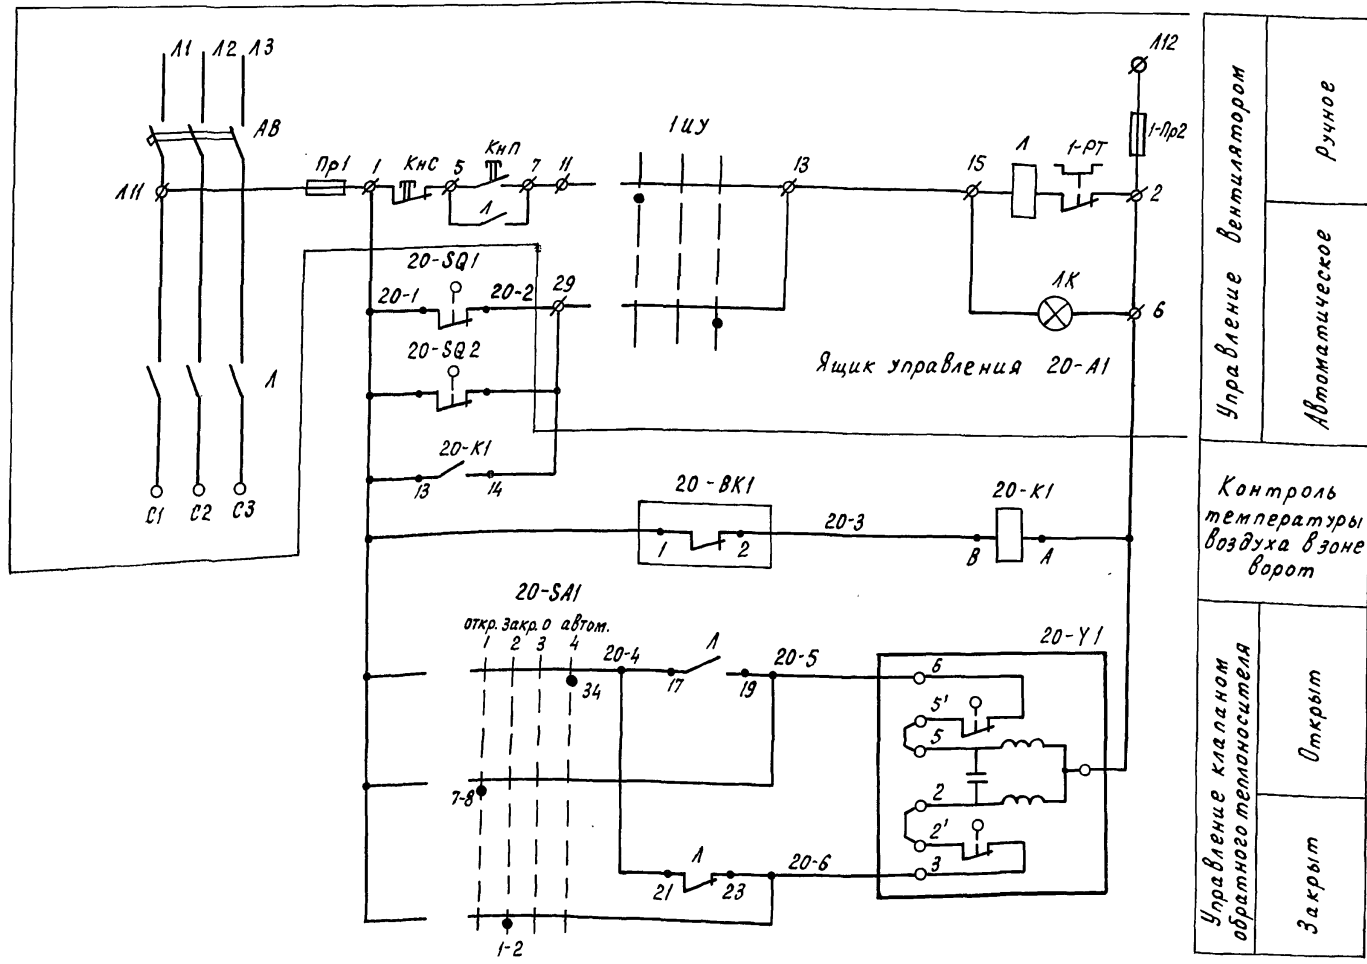 Л1 Л2 Л3
АВ
Л11
Пр1
1
КнС
5
КнП
7
11
Л
1ИУ
13
15
Л
1-РТ
Л12
1-Пр2
2
20-SQ1
20-1
20-2
29
20-SQ2
ЛК
6
Ящик управления 20-А1
Л
20-К1
13
14
С1 С2 С3
20-ВК1
1
2
20-3
20-К1
В
А
20-SA1
откр. закр. 0 автом.
1 2 3 4
34
20-4
17
Л
19
20-5
20-Y1
6
5'
5
2
2'
3
7-8
21
Л
23
20-6
1-2
Управление вентилятором
Ручное
Автоматическое
Контроль
температуры
воздуха в зоне
ворот
Управление клапаном
обратного теплоносителя
Открыт
Закрыт